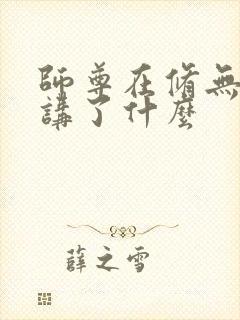 師尊在脩無
講了什麼
薛之雪